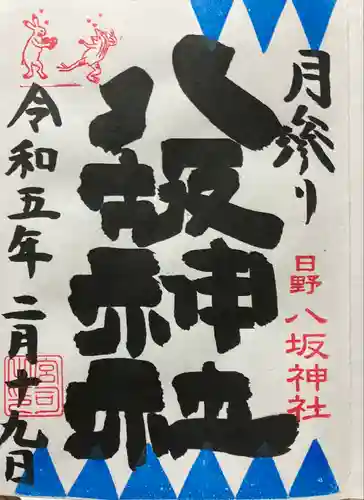 月参り
日野
八坂神社
八坂神社
令和五年二月十九日